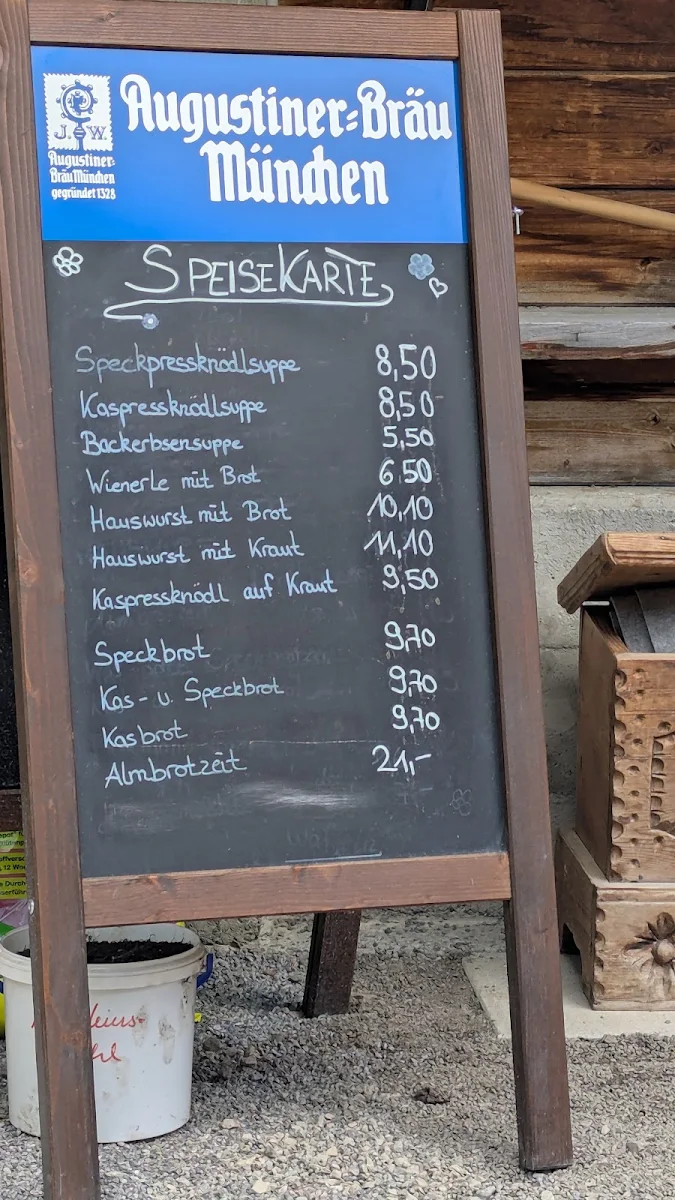 J. W.
Augustiner=
Bräu München
gegründet 1328
Augustiner=Bräu
München
SPEISEKARTE
Speckpressknödlsuppe 8,50
Kaspressknödlsuppe 8,50
Backerbsensuppe 5,50
Wienerle mit Brot 6 50
Hauswurst mit Brot 10,10
Hauswurst mit Kraut 11,10
Kaspressknödl auf Kraut 9,50
Speckbrot 9,70
Kas- u. Speckbrot 9,70
Kasbrot 9,70
Almbrotzeit 21,-